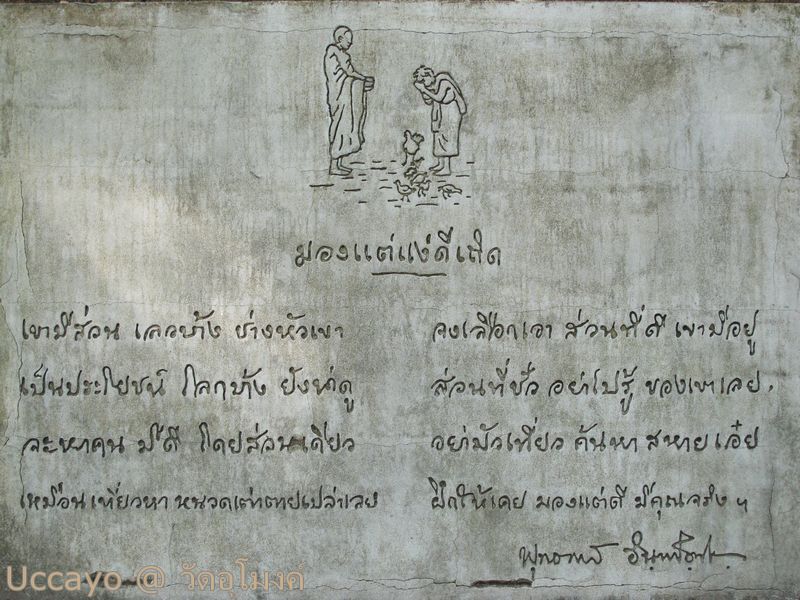 มองแต่แง่ดีเถิด
เขามีส่วน เลวบ้าง ช่างหัวเขา จงเลือกเอา ส่วนที่ดี เขามีอยู่
เป็นประโยชน์ โลกบ้าง ยังน่าดู ส่วนที่ชั่ว อย่าไปรู้ ของเขาเลย.
จะหาคน มีดี โดยส่วนเดียว อย่ามัวเที่ยว ค้นหา สหายเอ๋ย
เหมือนเที่ยวหา หนวดเต่า ตายเปล่าเลย ฝึกให้เคย มองแต่ดี มีคุณจริง ฯ
พุทธทาส อินฺทปญฺโญ
Uccayo @ วัดอุโมงค์